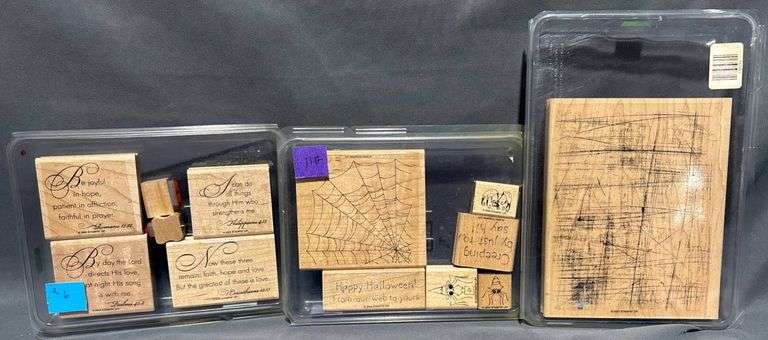 Be joyful
in hope,
patient in affliction,
faithful in prayer.
Romans 12:12
I can do
all things
through Him who
strengthens me.
Philippians 4:13
By day the Lord
directs His love,
at night His song
is with me.
Psalms 42:8
Now these three
remain: faith, hope and love.
But the greatest of these is love.
Happy Halloween!
From our web to yours
Creeping
by just to
say hi!